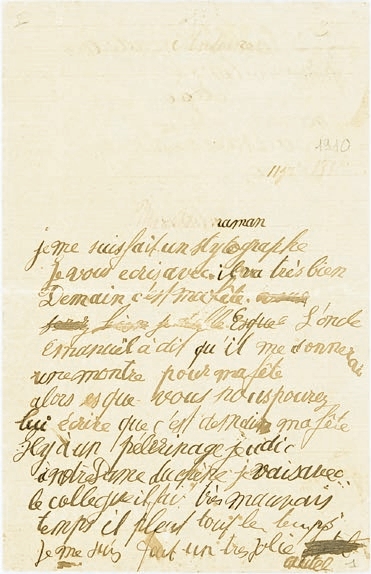 1910
maman
je me suis fait un stylographe
je vous ecris avec il va très bien
Demain c'est ma fête
Esque L'oncle
Emanuël à dit qu'il me donnerais
une montre pour ma fête
alors es que vous nous pourez
lui écrire que c'est demain ma fête
Il y à un pélerinage jeudi
à notre Dame du chène je vais avec
le collegue il fai très mauvais
temps il pleut tout le temps
je me suis fait un tres jolie
autel
1